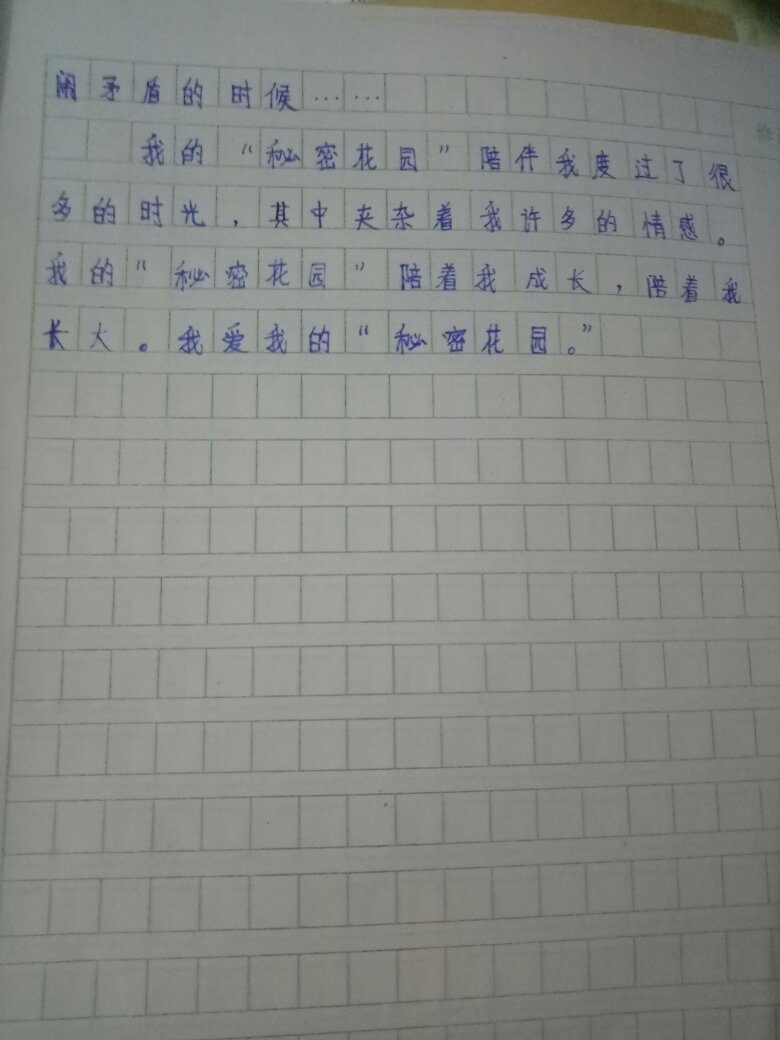 闹矛盾的时候……
我的“秘密花园”陪伴我度过了很
多的时光，其中夹杂着我许多的情感。
我的“秘密花园”陪着我成长，陪着我
长大。我爱我的“秘密花园。”